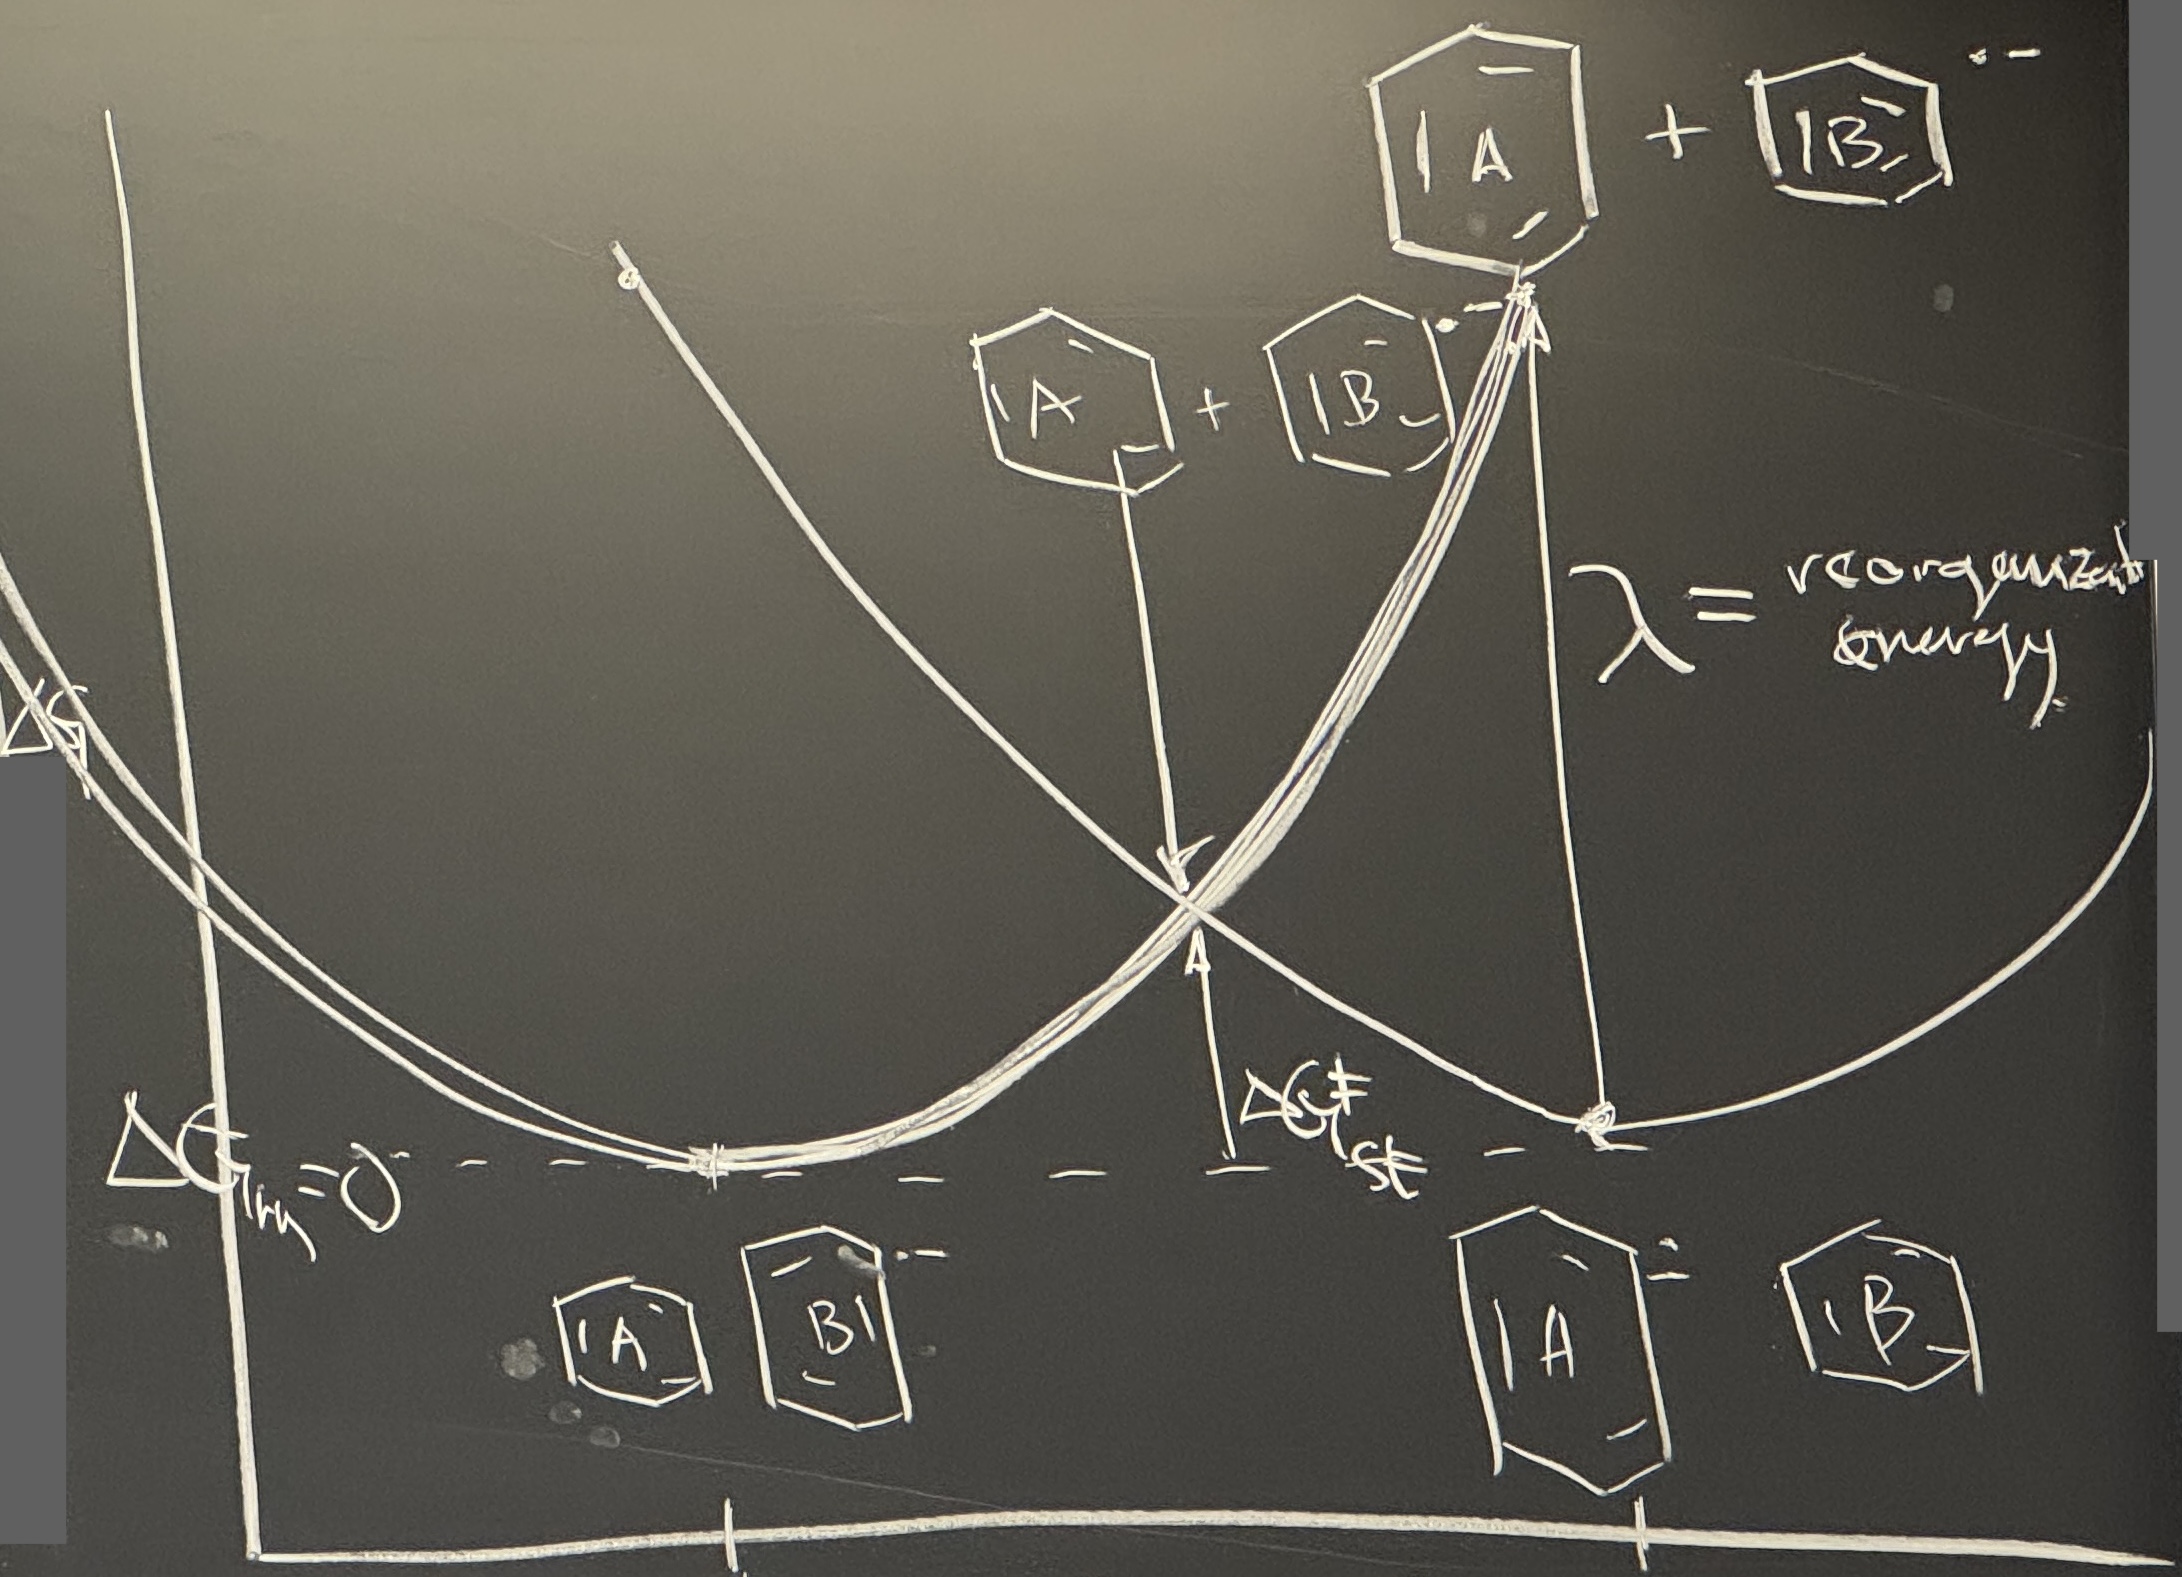 A + B •−
A + B •−
λ = reorganizat
energy
ΔG
ΔG‡st
ΔGrxn=0
A B •−
A •− B